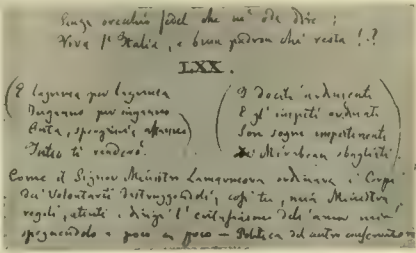 Senza orecchio fedel che m' oda dire;
Viva l' Italia, e buon padron chi resta!?
LXX.
E lagrima per lagrima
Inganno per inganno
Onta, spergiuri,
Tutto ti renderò.
I dociti ardimenti
E gl' impeti ordinati
Son sogni impertinenti
Di Mirabeau sbagliati
Come il Signor Ministro Lamarmora ordinava i Corpi
dei Volontarii distruggendoli, così tu, mia Ministra,
regoli, e dirigi l' amor mio
spegnendolo a poco a poco – Politica del